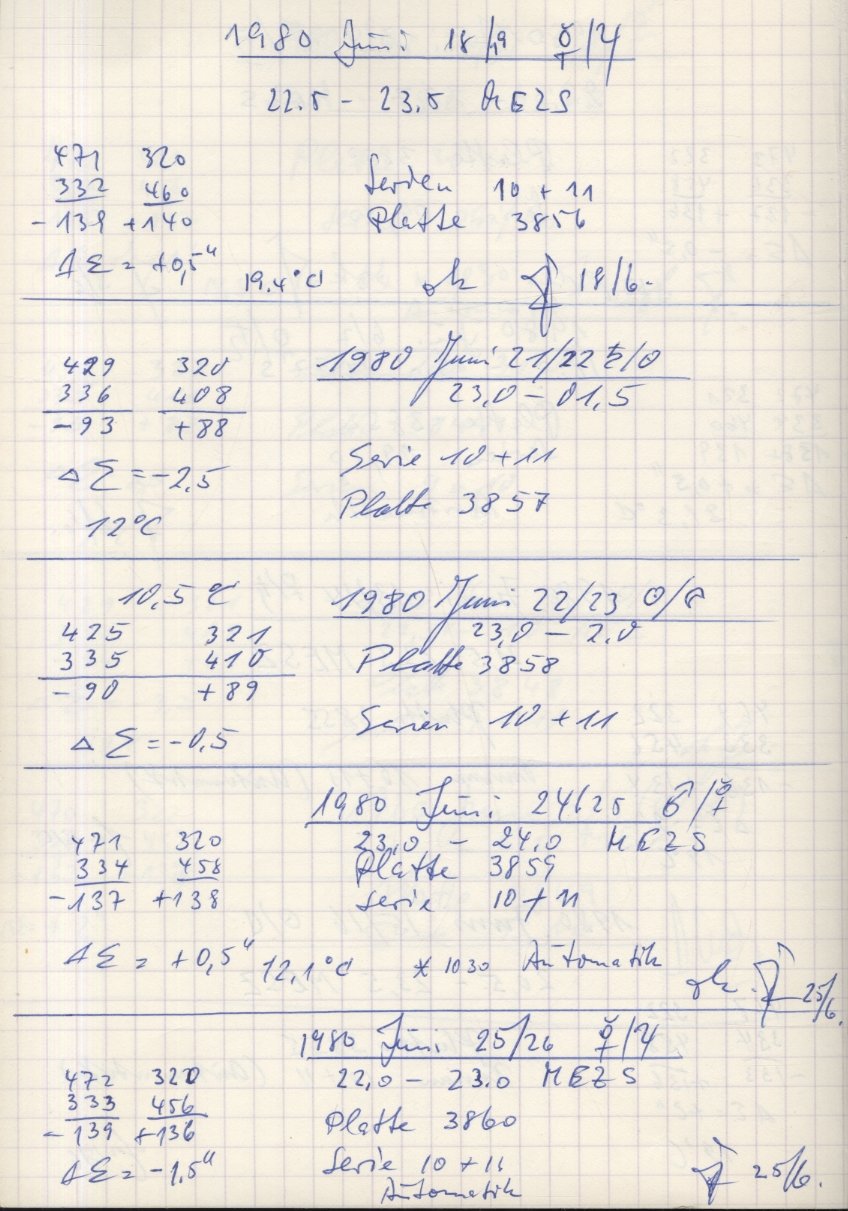 1980 Juni 18/19 ☿/♃
22.5 – 23.5 MEZS
471 320
332 460
-139 +140
Serien 10 + 11
Platte 3856
ΔΣ = +0,5"
19.4°C
ok 18/6.
429 320
336 408
-93 +88
1980 Juni 21/22 ♄/☉
23,0 – 01,5
ΔΣ = -2,5
12°C
Serie 10 + 11
Platte 3857
10,5 °C
1980 Juni 22/23 ☉/☾
23,0 – 2.0
425 321
335 410
-90 +89
Platte 3858
ΔΣ = -0,5
Serien 10 + 11
1980 Juni 24/25 ♂/☿
23.0 – 24.0 MEZS
471 320
334 458
-137 +138
Platte 3859
Serie 10 + 11
ΔΣ = +0,5" 12,1°C * 1030 Automatik
ok 25/6.
1980 Juni 25/26 ☿/♃
22,0 – 23.0 MEZS
472 320
333 456
-139 +136
Platte 3860
ΔΣ = -1,5"
Serie 10 + 11
Automatik
25/6.